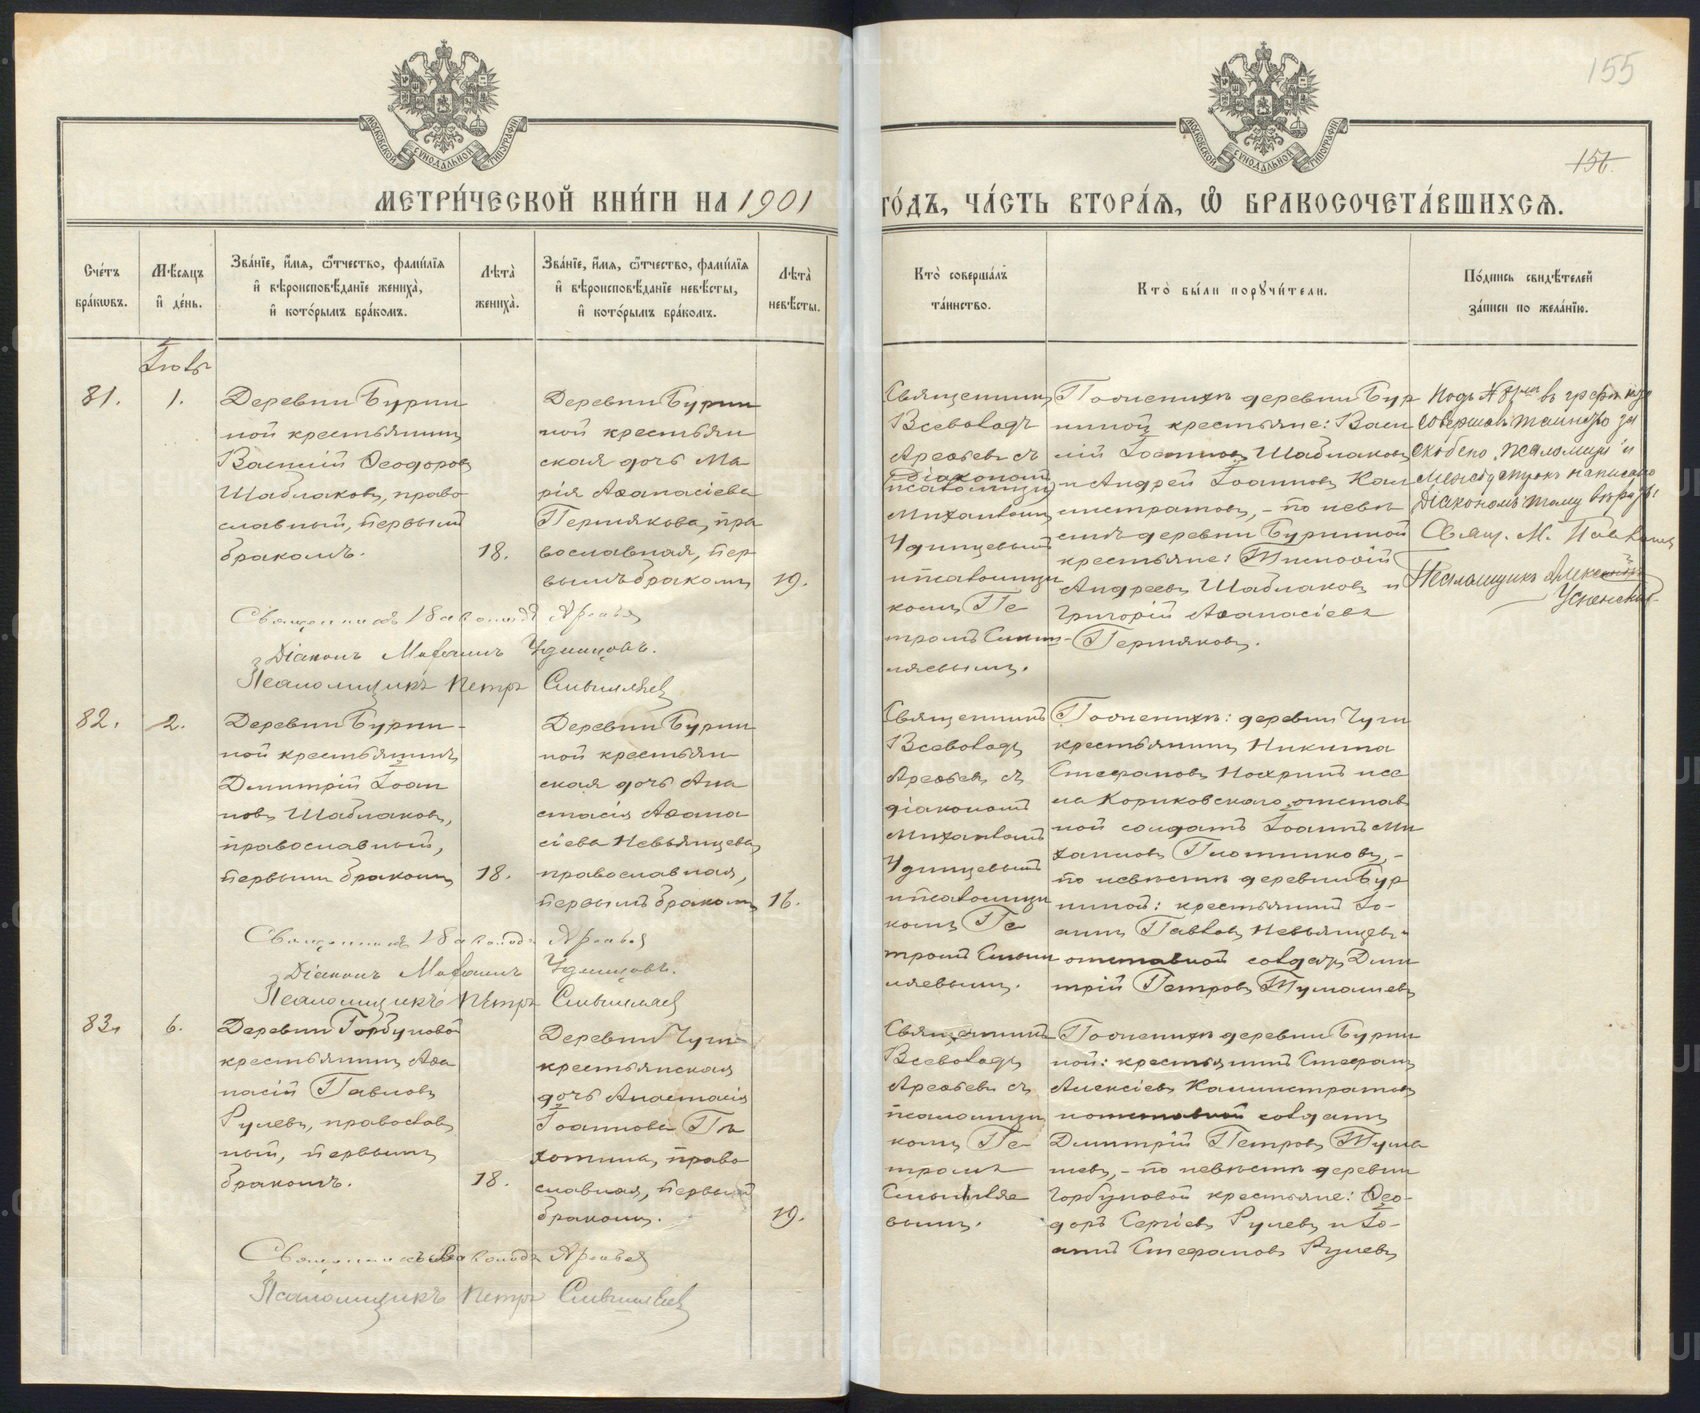 155
156.
МЕТРИ́ЧЕСКОЙ КНИ́ГИ НА 1901
ГО́ДЪ, ЧА́СТЬ ВТОРА́Я, Ѡ БРАКОСОЧЕТА́ВШИХСЯ.
Сче́тъ бра́кѡвъ.
Мѣ́сяцъ и де́нь.
Зва́нїе, и́мя, ѻ́тчество, фами́лїя и вѣроисповѣ́данїе жениха̀, и кото́рымъ бра́комъ.
Лѣ́та жениха̀.
Зва́нїе, и́мя, ѻ́тчество, фами́лїя и вѣроисповѣ́данїе невѣ́сты, и кото́рымъ бра́комъ.
Лѣ́та невѣ́сты.
Кто̀ соверша́лъ та́инство.
Кто̀ бы́ли поручи́тели.
По́дпись свидѣ́телей за́писи по жела́нїю.
81.
1.
Деревни Бурни
ной крестьянинъ
Василій Ѳеодоровъ
Шаблаковъ, право
славный, первымъ
бракомъ.
18.
Деревни Бурни
ной крестьян
ская дочь Ма
рія Аѳанасіева
Пермякова, пра
вославная, пер
вымъ бракомъ
19.
Священникъ
Всеволодъ
Арефьевъ съ
Діакономъ
псаломщи
Михаиломъ
Удинцевымъ
и псаломщи
комъ Пе
тромъ Смыш
ляевымъ.
По женихѣ деревни Бур
ниной крестьяне: Васи
лій Іоанновъ Шаблаковъ
и Андрей Іоанновъ Кал
систратовъ, - по невѣ
стѣ деревни Бурниной
крестьяне: Тимоѳій
Андреевъ Шаблаковъ и
Григорій Аѳанасіевъ
Пермяковъ.
Подъ № 81мъ въ графѣ кто
совершалъ таинство за
скоблено "псаломщи" и
между строкъ написано
діакономъ тому вѣрить
Свящ. М.
Псаломщикъ Александръ
Успенскій
Священникъ Всеволодъ Арефьев
Діаконъ Михаилъ Удинцовъ.
Псаломщикъ Петръ Смышляев
82.
2.
Деревни Бурни-
ной крестьянинъ
Димитрій Іоан
новъ Шаблаковъ,
православный,
первымъ бракомъ
18.
Деревни Бурни
ной крестьян
ская дочь Ана
стасія Аѳана
сіева Невьянцева,
православная,
первымъ бракомъ
16.
Священникъ
Всеволодъ
Арефьевъ съ
діакономъ
Михаиломъ
Удинцевымъ
и псаломщи
комъ Пе
тромъ Смыш
ляевымъ.
По женихѣ: деревни Чуги
крестьянинъ Никита
Стефановъ и се
ла Кориковскаго отстав
ной солдатъ Іоаннъ Ми
хаиловъ Плотниковъ, -
по невѣстѣ деревни Бур
ниной: крестьянинъ Іо-
аннъ Павловъ Невьянцевъ и
отставной солдатъ Дими
трій Петровъ
Священникъ Всеволодъ Арефьев
Діаконъ Михаилъ Удинцовъ.
Псаломщикъ Петръ Смышляев
83.
6.
Деревни Горбуновой
крестьянинъ Аѳа
насій Павловъ
Рулевъ, православ
ный, первымъ
бракомъ.
18.
Деревни Чуги
крестьянская
дочь Анастасія
Іоаннова Пѣ
хотина, право
славная, первымъ
бракомъ.
19.
Священникъ
Всеволодъ
Арефьевъ съ
псаломщи
комъ Пе
тромъ
Смышляе
вымъ.
По женихѣ деревни Бурни
ной: крестьянинъ Стефанъ
Алексіевъ Калистратовъ
и отставной солдатъ
Димитрій Петровъ
по невѣстѣ деревни
Горбуновой крестьяне: Ѳео-
доръ Сергіевъ Рулевъ и Іо-
аннъ Стефановъ Рулевъ
Священникъ Всеволодъ Арефьев
Псаломщикъ Петръ Смышляев